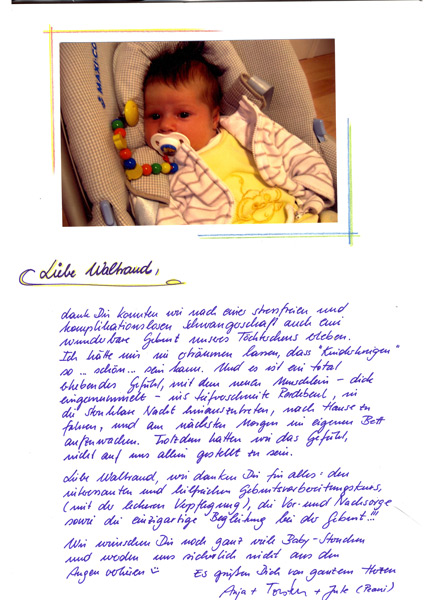 MAXI-COSI
Liebe Waltraud,
dank Dir konnten wir nach einer stressfreien und
komplikationslosen Schwangerschaft auch eine
wunderbare Geburt unseres Töchterchens erleben.
Ich hätte mir nie erträumen lassen, dass "Kinderkriegen"
so ... schön ... sein kann. Und es ist ein total
erhebendes Gefühl, mit dem neuen Menschlein - dick
eingemummelt - ins tiefverschneite , in
die sternklare Nacht hinauszutreten, nach Hause zu
fahren, und am nächsten Morgen im eigenen Bett
aufzuwachen. Trotzdem hatten wir das Gefühl,
nicht auf uns allein gestellt zu sein.
Liebe Waltraud, wir danken Dir für alles: den
interessanten und hilfreichen Geburtsvorbereitungskurs,
(mit der leckeren Verpflegung), die Vor- und Nachsorge
sowie die einzigartige Begleitung bei der Geburt...!!!
Wir wünschen Dir noch ganz viele Baby-Stunden
und werden uns sicherlich nicht aus den
Augen verlieren
Es grüßen Dich von ganzem Herzen
Anja + Torsten + Jule